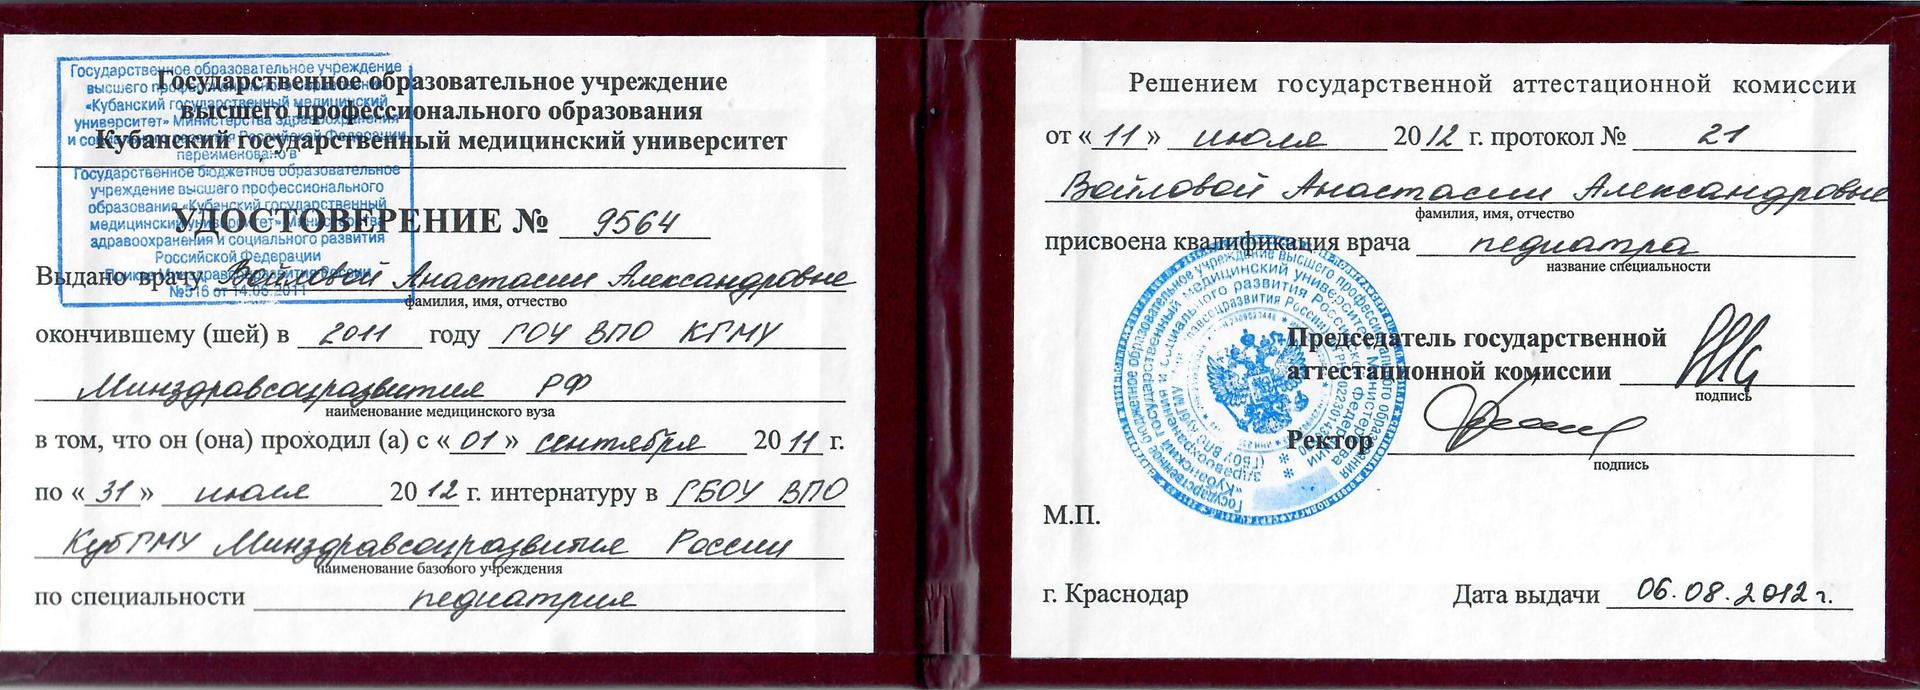 Государственное образовательное учреждение
высшего профессионального образования
Кубанский государственный медицинский университет
Государственное образовательное учреждение
высшего профессионального образования
«Кубанский государственный медицинский
университет» Министерства здравоохранения
и социального развития Российской Федерации
переименовано в
Государственное бюджетное образовательное
учреждение высшего профессионального
образования «Кубанский государственный
медицинский университет» Министерства
здравоохранения и социального развития
Российской Федерации
Приказ Минздравсоцразвития России
№516 от 14.06.2011
УДОСТОВЕРЕНИЕ № 9564
Выдано врачу Войловой Анастасии Александровне
фамилия, имя, отчество
окончившему (шей) в 2011 году ГОУ ВПО КГМУ
Минздравсоцразвития РФ
наименование медицинского вуза
в том, что он (она) проходил (а) с «01» сентября 2011 г.
по «31» июля 2012 г. интернатуру в ГБОУ ВПО
КубГМУ Минздравсоцразвития России
наименование базового учреждения
по специальности педиатрия
Решением государственной аттестационной комиссии
от «11» июля 2012 г. протокол № 21
Войловой Анастасии Александровне
фамилия, имя, отчество
присвоена квалификация врача педиатра
название специальности
Председатель государственной
аттестационной комиссии
подпись
Ректор
подпись
М.П.
г. Краснодар Дата выдачи 06.08.2012 г.